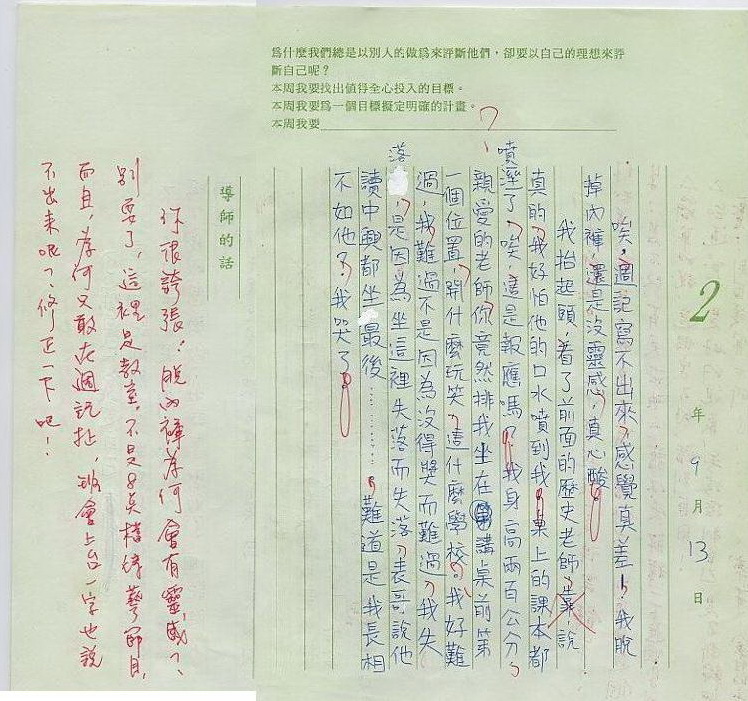 為什麼我們總是以別人的做為來評斷他們，卻要以自己的理想來評
斷自己呢？
本周我要找出值得全心投入的目標。
本周我要為一個目標擬定明確的計畫。
本周我要
2
年 9 月 13 日
唉，週記寫不出來，感覺真差！我脫
掉內褲，還是沒靈感，真心酸。
我抬起頭，看了前面的歷史老師，說
真的，我好怕他的口水噴到我桌上的課本都
噴溼了，唉，這是報應嗎？我身高兩百公分，
親愛的老師你竟然排我坐在講桌前第
一個位置，開什麼玩笑，這什麼學校。我好難
過，我難過不是因為沒得獎而難過，我失
落，是因為坐這裡失落而失落，表哥說他
讀中興都坐最後………，難道是我長相
不如他？我哭了。
導師的話
你很誇張！脫內褲為何會有靈感？
別耍了，這裡是教室，不是8點檔綜藝節目，
而且，為何只敢在週記扯，班會上台一字也說
不出來呢？修正一下吧！